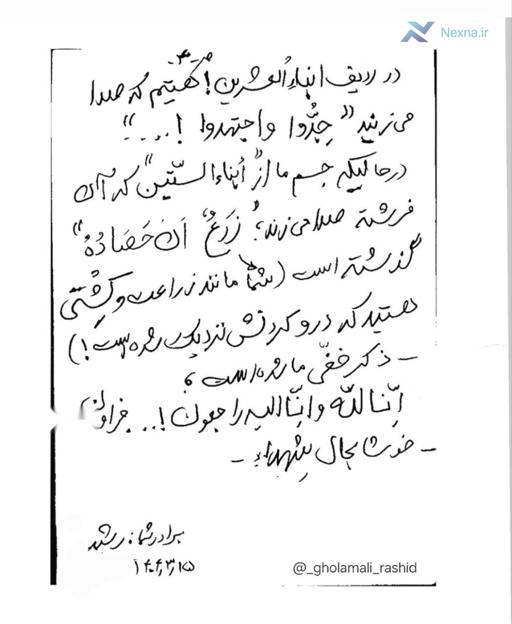 Nexna.ir
در ردیف ابناءُ العشرین! گفتیم که صدا
می‌زنید "جِدُّوا واجتهدوا !...."
درحالیکه جسم ما از "أبناءالستّین" که آن
فرشته صدا می‌زند؛ "زَرعٌ آنَ حَصَادُهُ"
گذشته است (شما مانند زراعت و کِشْتی
هستید که درو کردنش نزدیک شده است!)
- ذکر خفّی ما شده است؛
إنّا لله وإنّا الیه راجعون!...
- خوشا بحال شهداء -
برادر شما: رشید
۱۴۰۴,۳,۱۵
@_gholamali_rashid